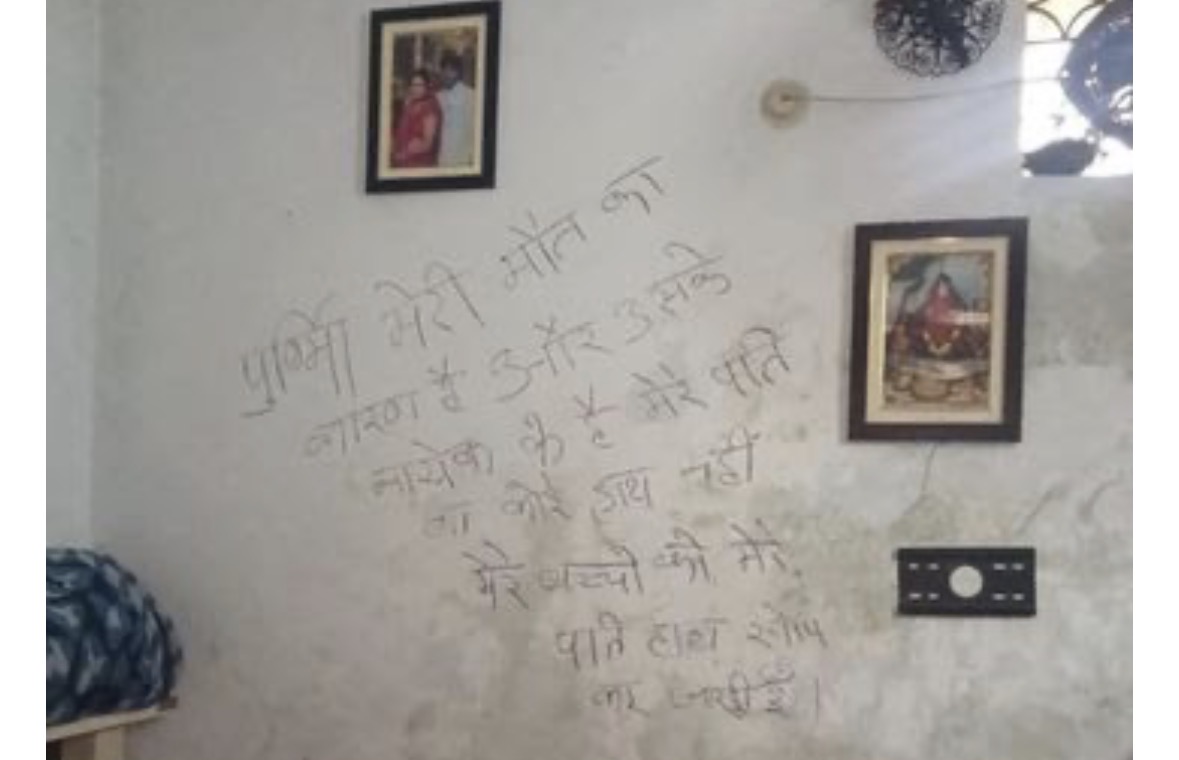 पुर्णिमा मेरी मौत का
कारण है और उसके
है मेरे पति
का कोई हाथ नही
मेरे बच्चो को मेरे
पति हाथ
कर